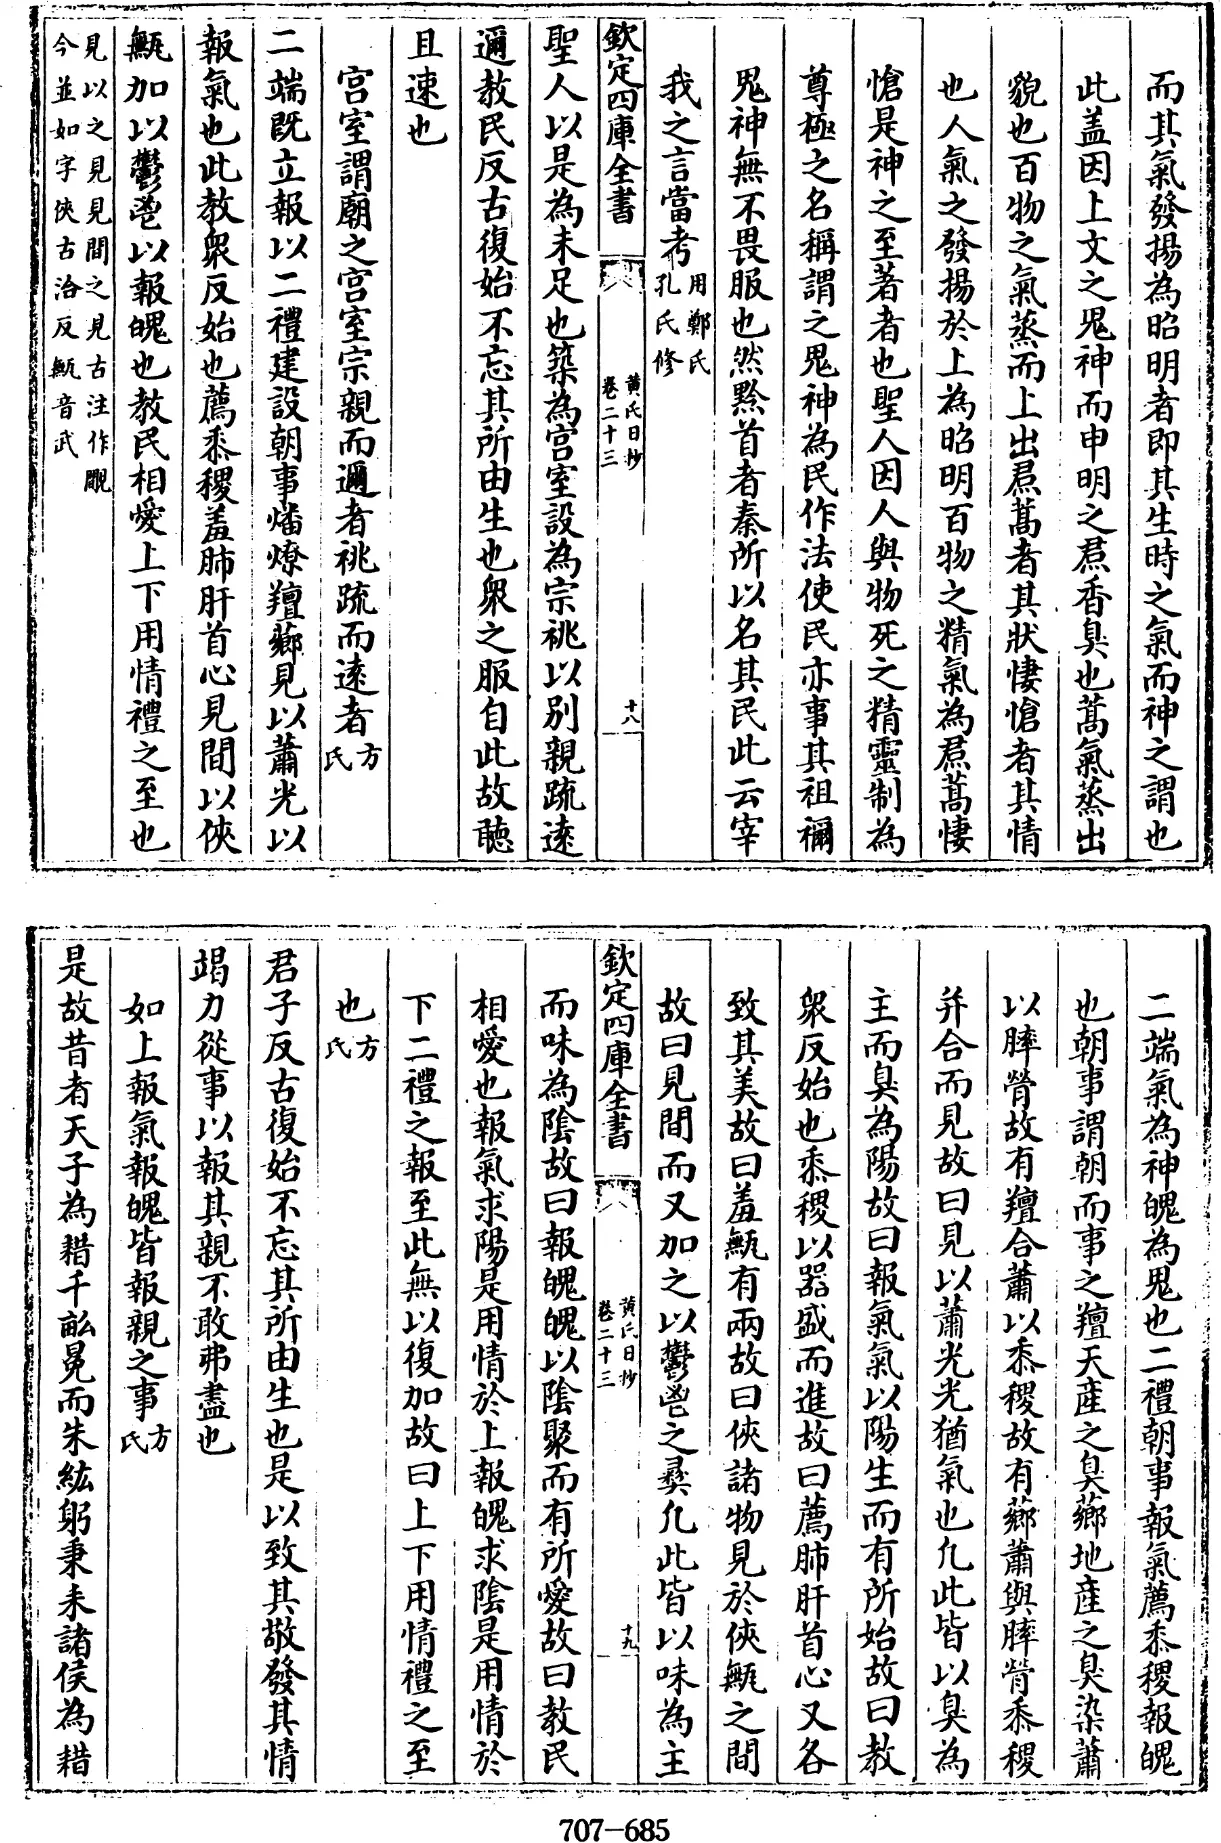 而其氣發揚為昭明者即其生時之氣而神之謂也
此盖因上文之鬼神而申明之焄香臭也蒿氣蒸出
貌也百物之氣蒸而上出焄蒿者其狀悽愴者其情
也人氣之發揚於上為昭明百物之精氣為焄蒿悽
愴是神之至著者也聖人因人與物死之精靈制為
尊極之名稱謂之鬼神為民作法使民亦事其祖禰
鬼神無不畏服也然黔首者秦所以名其民此云宰
我之言當考用鄭氏孔氏修
欽定四庫全書
黃氏日抄
卷二十三
十八
聖人以是為未足也築為宫室設為宗祧以别親疏逺
邇教民反古復始不忘其所由生也衆之服自此故聽
且速也
宫室謂廟之宫室宗親而邇者祧疏而逺者方氏
二端既立報以二禮建設朝事燔燎羶薌見以蕭光以
報氣也此教衆反始也薦黍稷羞肺肝首心見間以俠
甒加以鬱鬯以報魄也教民相愛上下用情禮之至也
見以之見見間之見古注作覸
今並如字俠古洽反甒音武
二端氣為神魄為鬼也二禮朝事報氣薦黍稷報魄
也朝事謂朝而事之羶天產之臭薌地產之臭染蕭
以膟膋故有羶合蕭以黍稷故有薌蕭與膟膋黍稷
并合而見故曰見以蕭光光猶氣也凡此皆以臭為
主而臭為陽故曰報氣氣以陽生而有所始故曰教
衆反始也黍稷以器盛而進故曰薦肺肝首心又各
致其美故曰羞甒有兩故曰俠諸物見於俠甒之間
故曰見間而又加之以鬱鬯之彞凡此皆以味為主
欽定四庫全書
黃氏日抄
卷二十三
十九
而味為陰故曰報魄魄以陰聚而有所愛故曰教民
相愛也報氣求陽是用情於上報魄求陰是用情於
下二禮之報至此無以復加故曰上下用情禮之至
也方氏
君子反古復始不忘其所由生也是以致其敬發其情
竭力從事以報其親不敢弗盡也
如上報氣報魄皆報親之事方氏
是故昔者天子為耤千畝冕而朱紘躬秉耒諸侯為耤
707-685